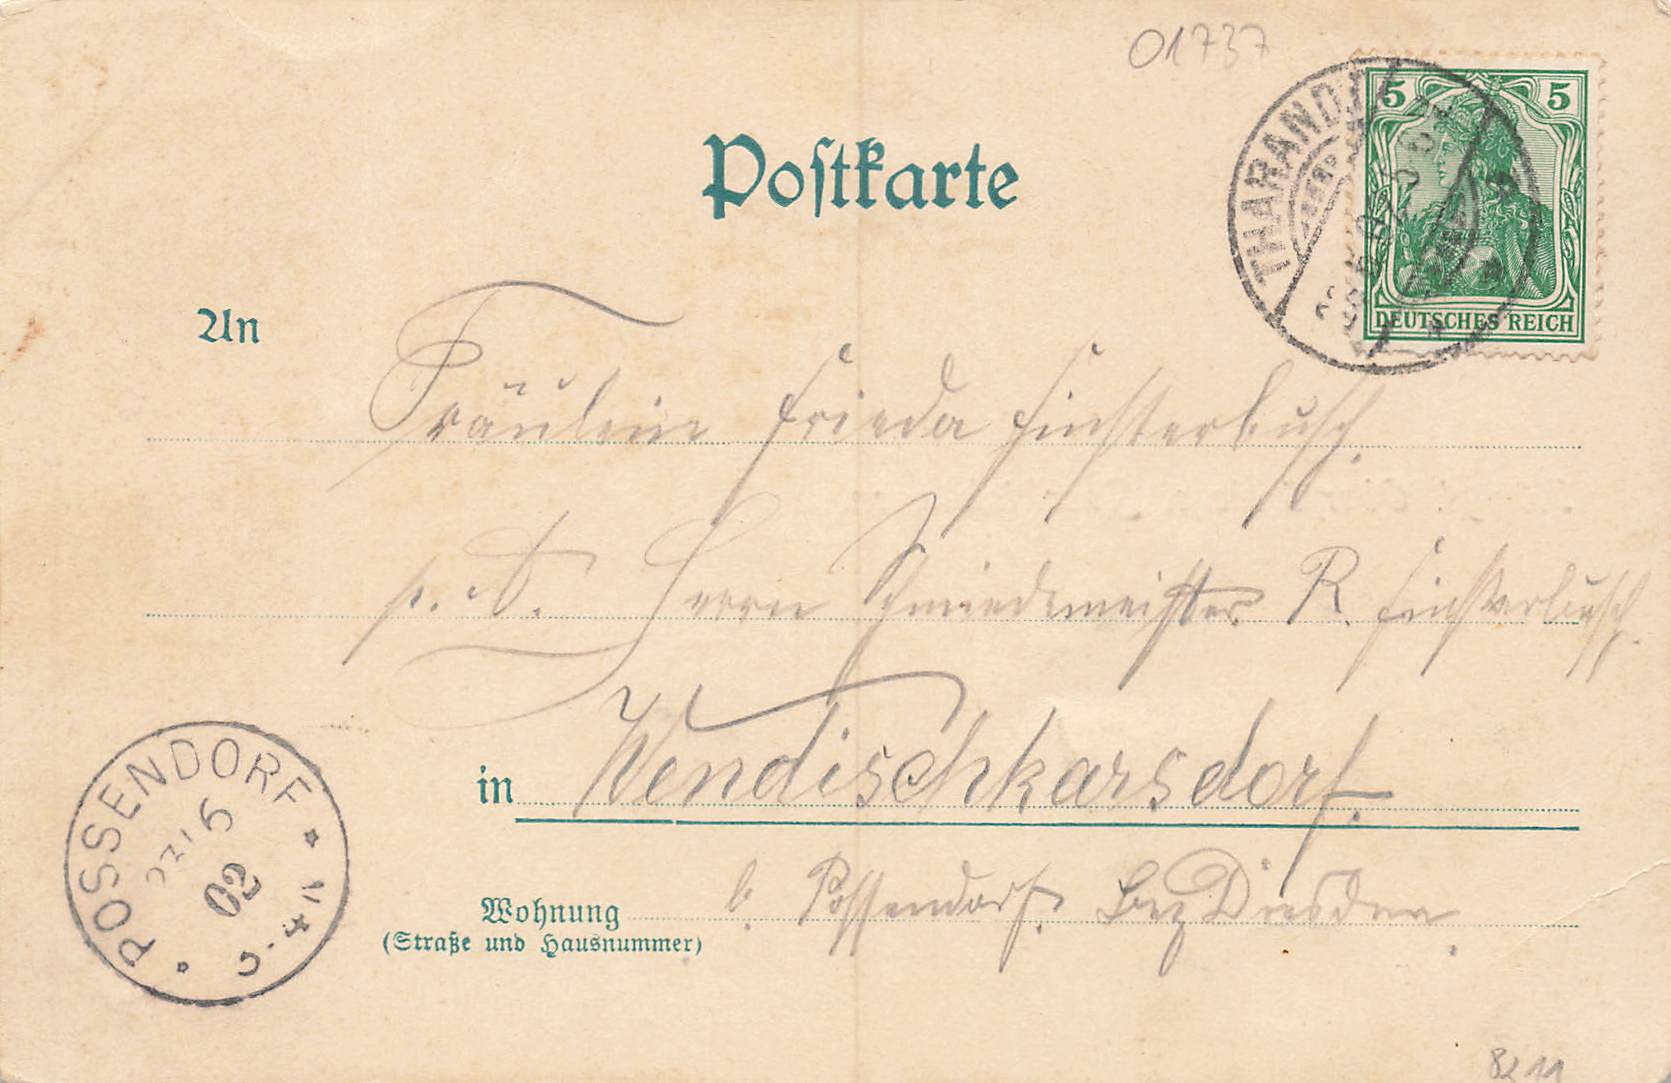 01737
Postkarte
THARANDT
5 5
DEUTSCHES REICH
An
Fräulein Frieda Finsterbusch.
p. A. Herrn Schmiedemeister R. Finsterbusch.
in Wendischkarsdorf.
POSSENDORF
5
02
Wohnung b. Possendorf. Bez Dresden.
(Straße und Hausnummer)
8211